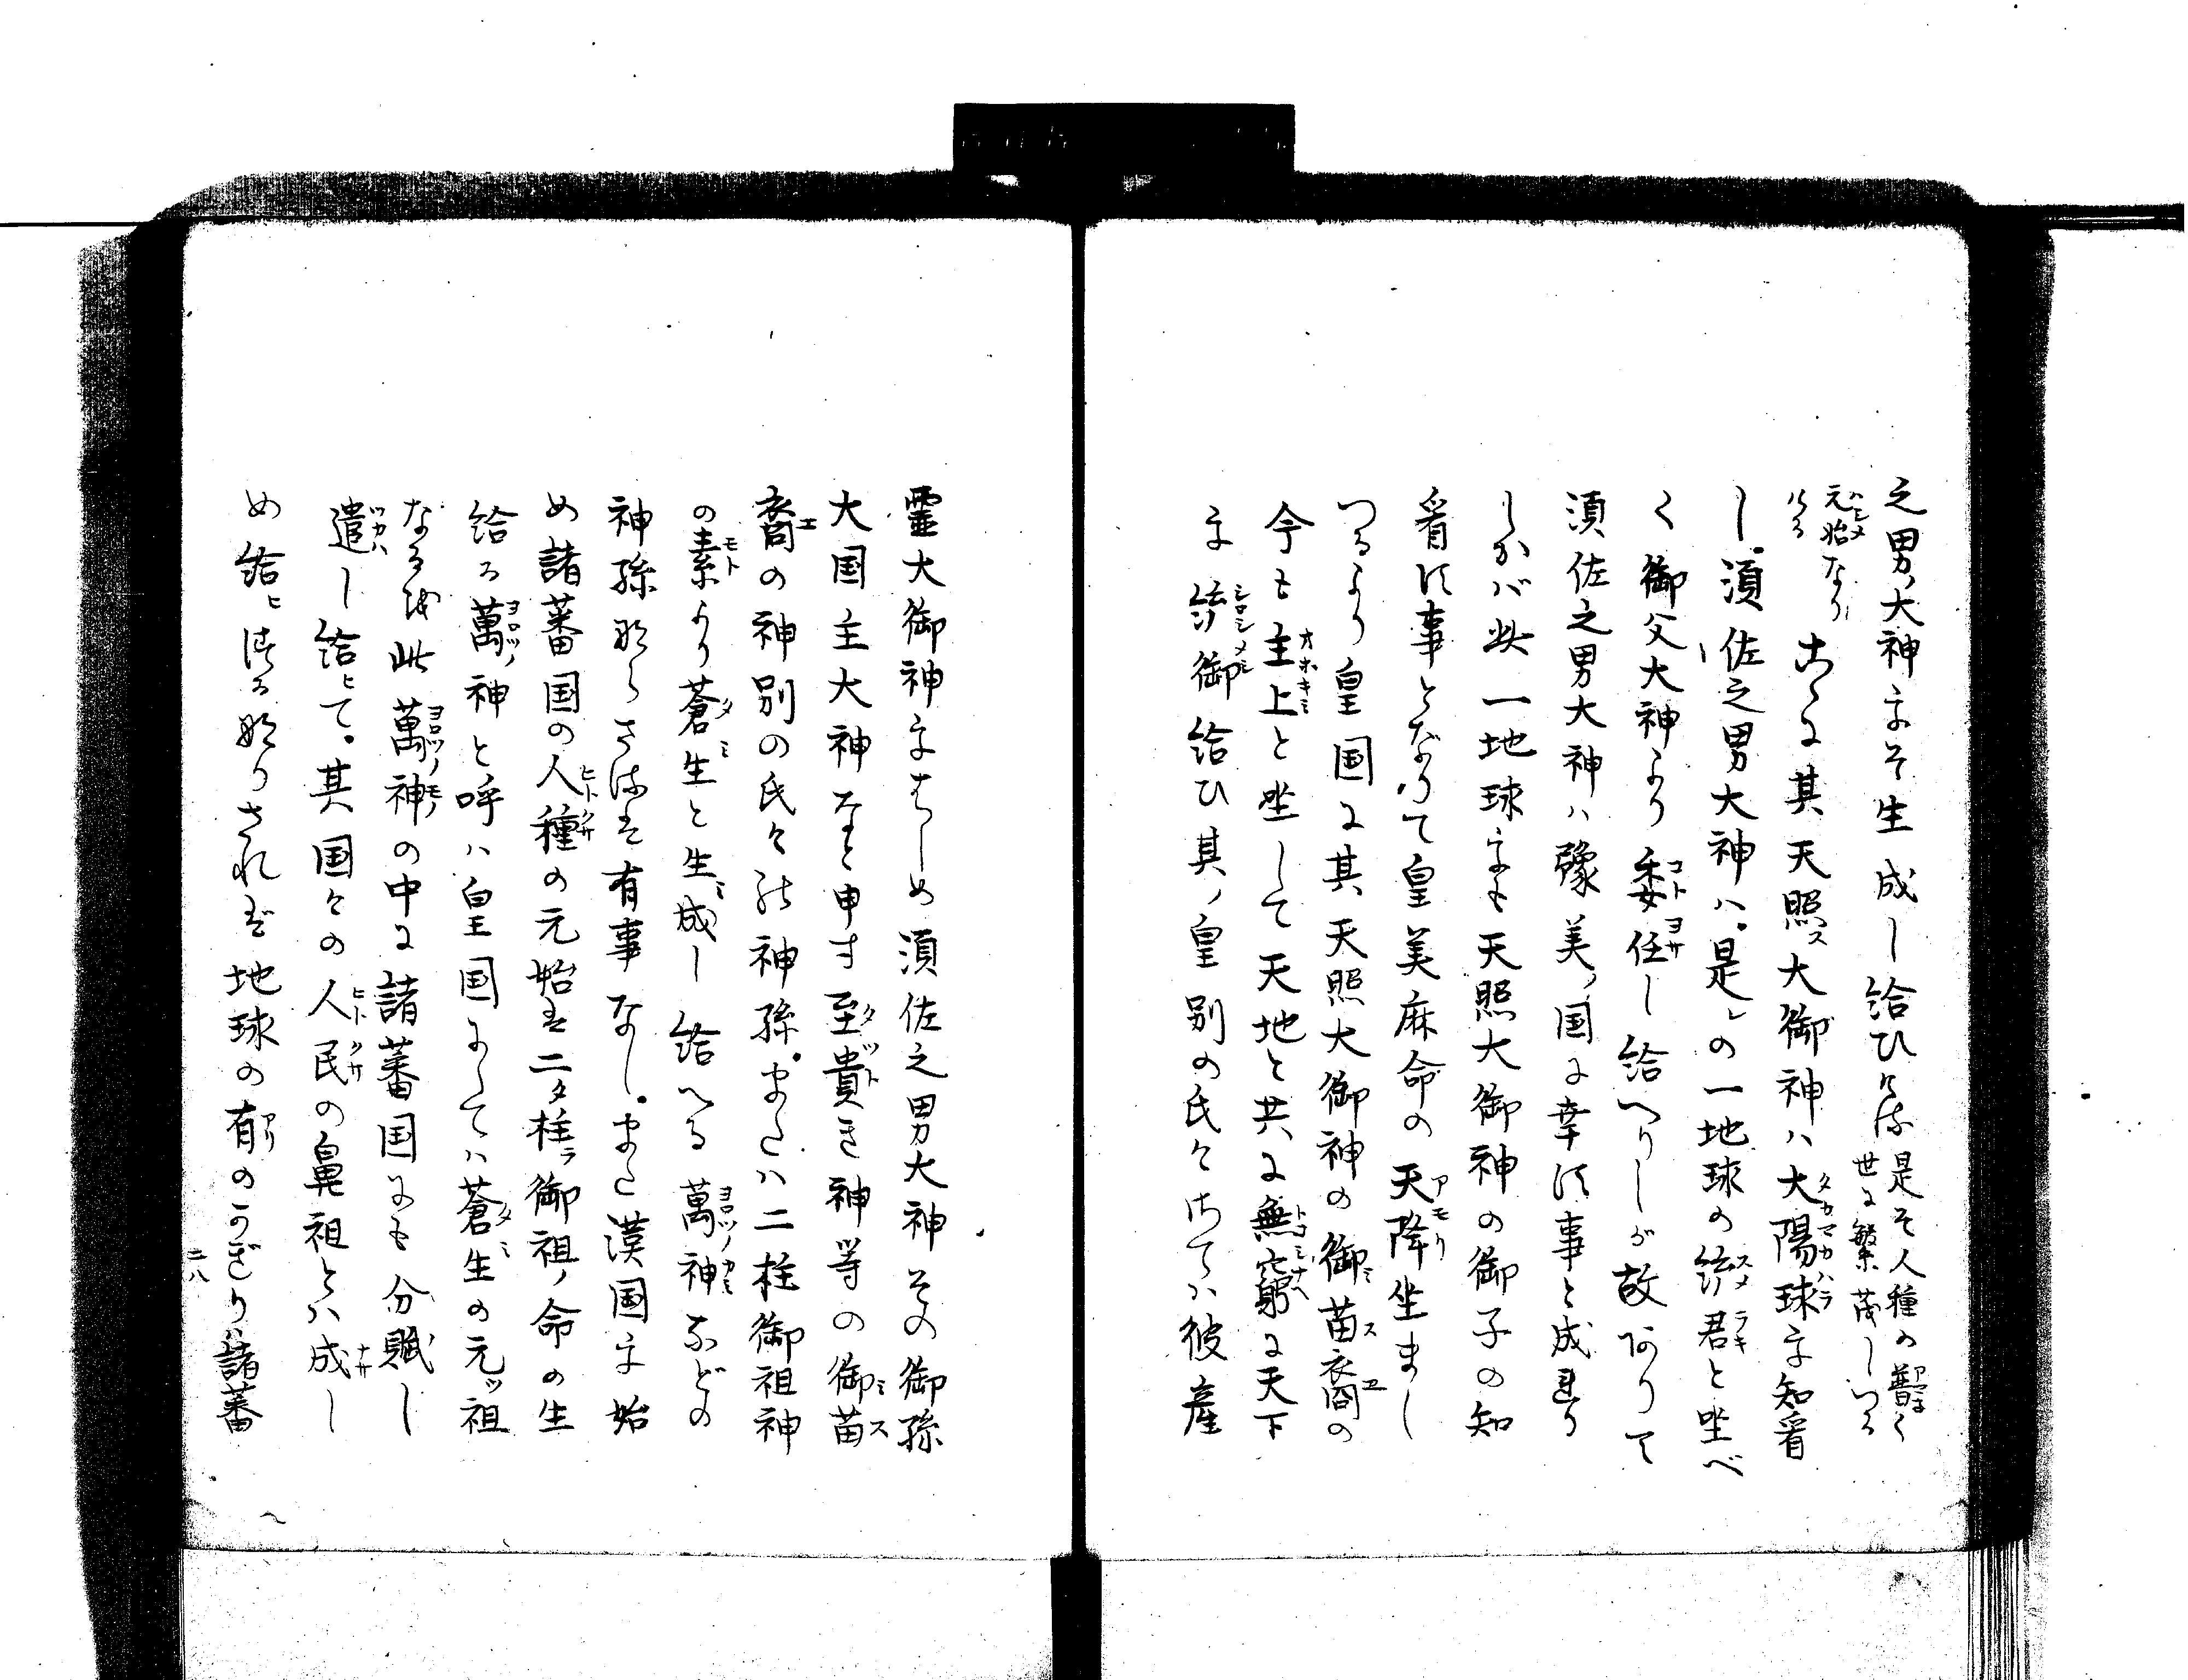 之男ノ大神にそ生成し給ひける是そ人種の普く世に繁茂しつる
元始なりける こゝに其天照ス大御神ハ大陽球に知看
し。須佐之男大神ハ。是レの一地球の統君と坐べ
く御父大神より委任し給へりしが故ありて
須佐之男大神ハ豫美ノ国に幸す事と成れり
しかバ此一地球にも天照大御神の御子の知
看す事となりて皇美麻命の天降坐まし
つるより皇国に其天照大御神の御苗裔の
今も主上と坐して天地と共に無窮に天下
に統御給ひ其ノ皇別の氏々はてハ彼産
霊大御神にはしめ須佐之男大神その御孫
大国主大神なと申す至貴き神等の御苗
裔の神別の氏々の神孫。またハ二柱御祖神
の素より蒼生と生成し給へる萬神などの
神孫ならさるは有事なし。また漢国に始
め諸蕃国の人種の元始は二タ柱ラ御祖ノ命の生
給る萬ノ神と呼ハ皇国にてハ蒼生の元ツ祖
なるを此萬ノ神の中に諸蕃国にも分賦し
遣し給ヒて。其国々の人民の鼻祖とハ成し
め給ヒける也けりされば地球の有のかぎりハ諸蕃
二八